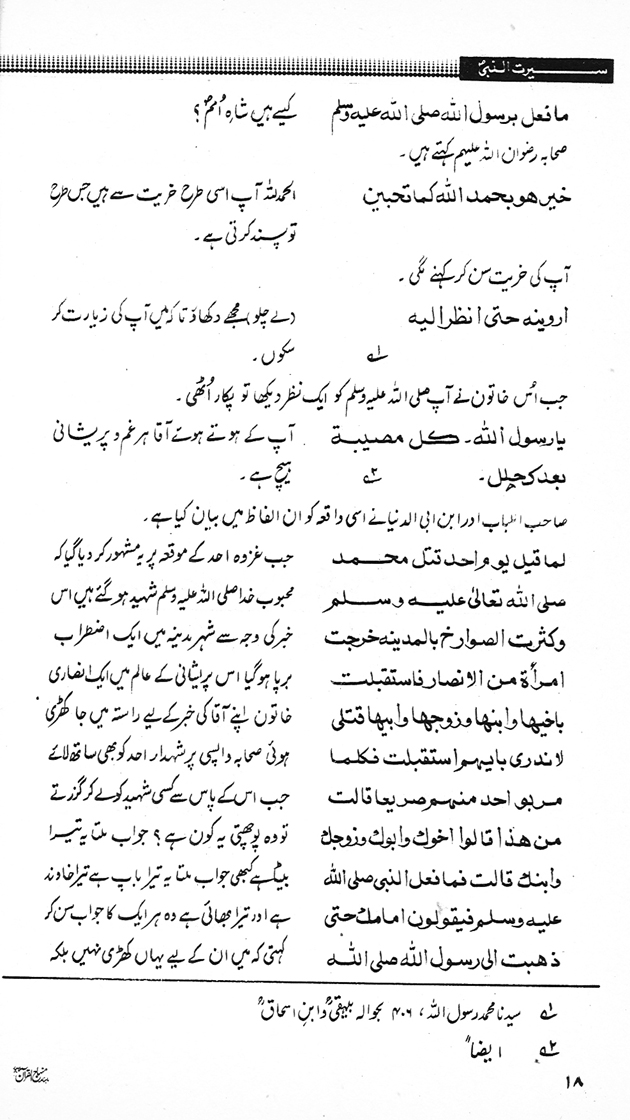 سیرت النبیؐ
ما فعل برسول الله صلی الله علیه وسلم کیسے ہیں شاہِ اُممؐ؟
صحابہ رضوان اللہ علیہم کہتے ہیں۔
خیر هو بحمد الله کما تحبین الحمد للہ آپ اسی طرح خیریت سے ہیں جس طرح
تو پسند کرتی ہے۔
آپ کی خیریت سن کر کہنے لگی۔
ارونیه حتی انظر الیه (لے چلو) مجھے دکھاؤ تاکہ میں آپ کی زیارت کر
سکوں۔ ؎۱
جب اُس خاتون نے آپ صلی اللہ علیہ وسلم کو ایک نظر دیکھا تو پکار اُٹھی۔
یا رسول الله۔ کل مصیبة آپ کے ہوتے ہوئے آقا ہر غم و پریشانی
بعدك جلل۔ ؎۲ ہیچ ہے۔
صاحب المواہب اور ابن ابی الدنیا نے اسی واقعہ کو ان الفاظ میں بیان کیا ہے۔
لما قیل یوم احد قتل محمد جب غزوہ احد کے موقعہ پر یہ مشہور کر دیا گیا کہ
صلی الله تعالیٰ علیه وسلم محبوب خدا صلی اللہ علیہ وسلم شہید ہو گئے ہیں اس
وکثرت الصوارخ بالمدینه خرجت خبر کی وجہ سے شہر مدینہ میں ایک اضطراب
امرأة من الانصار فاستقبلت برپا ہو گیا اس پریشانی کے عالم میں ایک انصاری
باخیها وابنها وزوجها وابیها قتلی خاتون اپنے آقا کی خبر کے لیے راستہ میں جا کھڑی
لا ندری بایهم استقبلت فکلما ہوئی صحابہ واپسی پر شہداء احد کو بھی ساتھ لائے
مر بواحد منهم صریعا قالت جب اس کے پاس سے کسی شہید کو لے کر گزرتے
من هذا قالوا اخوك وابوك وزوجك تو وہ پوچھتی یہ کون ہے؟ جواب ملتا یہ تیرا
وابنك قالت فما فعل النبی صلی الله بیٹا ہے کبھی جواب ملتا یہ تیرا باپ ہے تیرا خاوند
علیه وسلم فیقولون امامك حتی ہے اور تیرا بھائی ہے وہ ہر ایک کا جواب سن کر
ذهبت الی رسول الله صلی الله کہتی کہ میں ان کے لیے یہاں کھڑی نہیں بلکہ
؎۱ سیدنا محمد رسول اللہ، ۴۰۶ بحوالہ بیہقیؒ و ابن اسحاقؒ
؎۲ ایضاً
۱۸